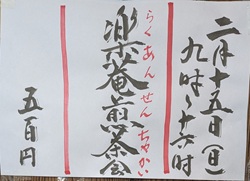 二月十五日(日)
九時〜十六時
らくあんせんちゃかい
楽菴煎茶会
五百円